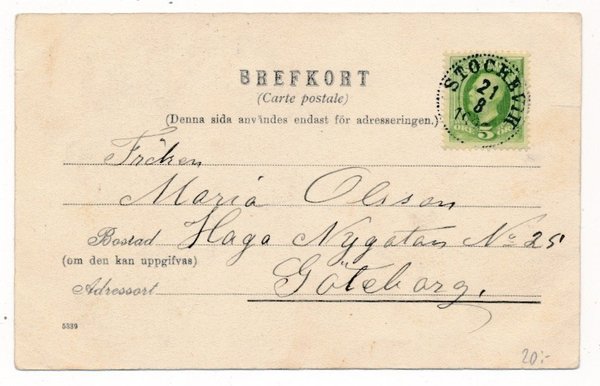 BREFKORT
(Carte postale)
(Denna sida användes endast för adresseringen.)
STOCKEVIK
21
8
19
ÖRE 5 ÖRE
Fröken
Maria Olsson
Bostad Haga Nygatan No 25
(om den kan uppgifvas)
Adressort Göteborg.
5339
20:-